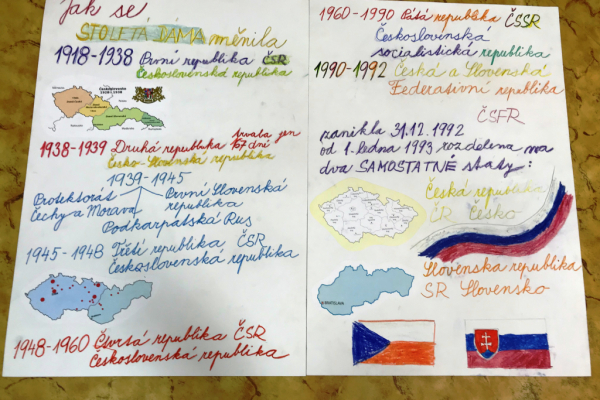 Jak se
STOLETÁ DÁMA měnila
1918-1938 První republika ČSR
Československá republika
1938-1939 Druhá republuka trvala jen
167 dní
Česko-Slovenská republika
1939-1945
Protektorát
Čechy a Morava
První Slovenská
republika
Podkarpatská Rus
1945-1948 Třetí republika ČSR
Československá republika
1948-1960 Čtvrtá republika ČSR
Československá republika
1960-1990 Pátá republika ČSSR
Československá
socialistická republika
1990-1992 Česká a Slovenská
Federativní republika
ČSFR
zanikla 31.12.1992
od 1. ledna 1993 rozdelena na
dva SAMOSTATNÉ státy:
Česká republika
ČR Česko
Slovenska republika
SR Slovensko
BRATISLAVA